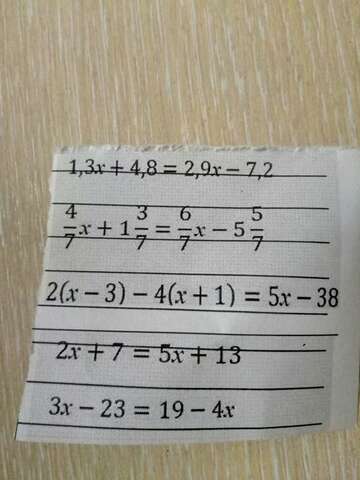 1,3x + 4,8 = 2,9x − 7,2
4/7 x + 1 3/7 = 6/7 x − 5 5/7
2(x − 3) − 4(x + 1) = 5x − 38
2x + 7 = 5x + 13
3x − 23 = 19 − 4x